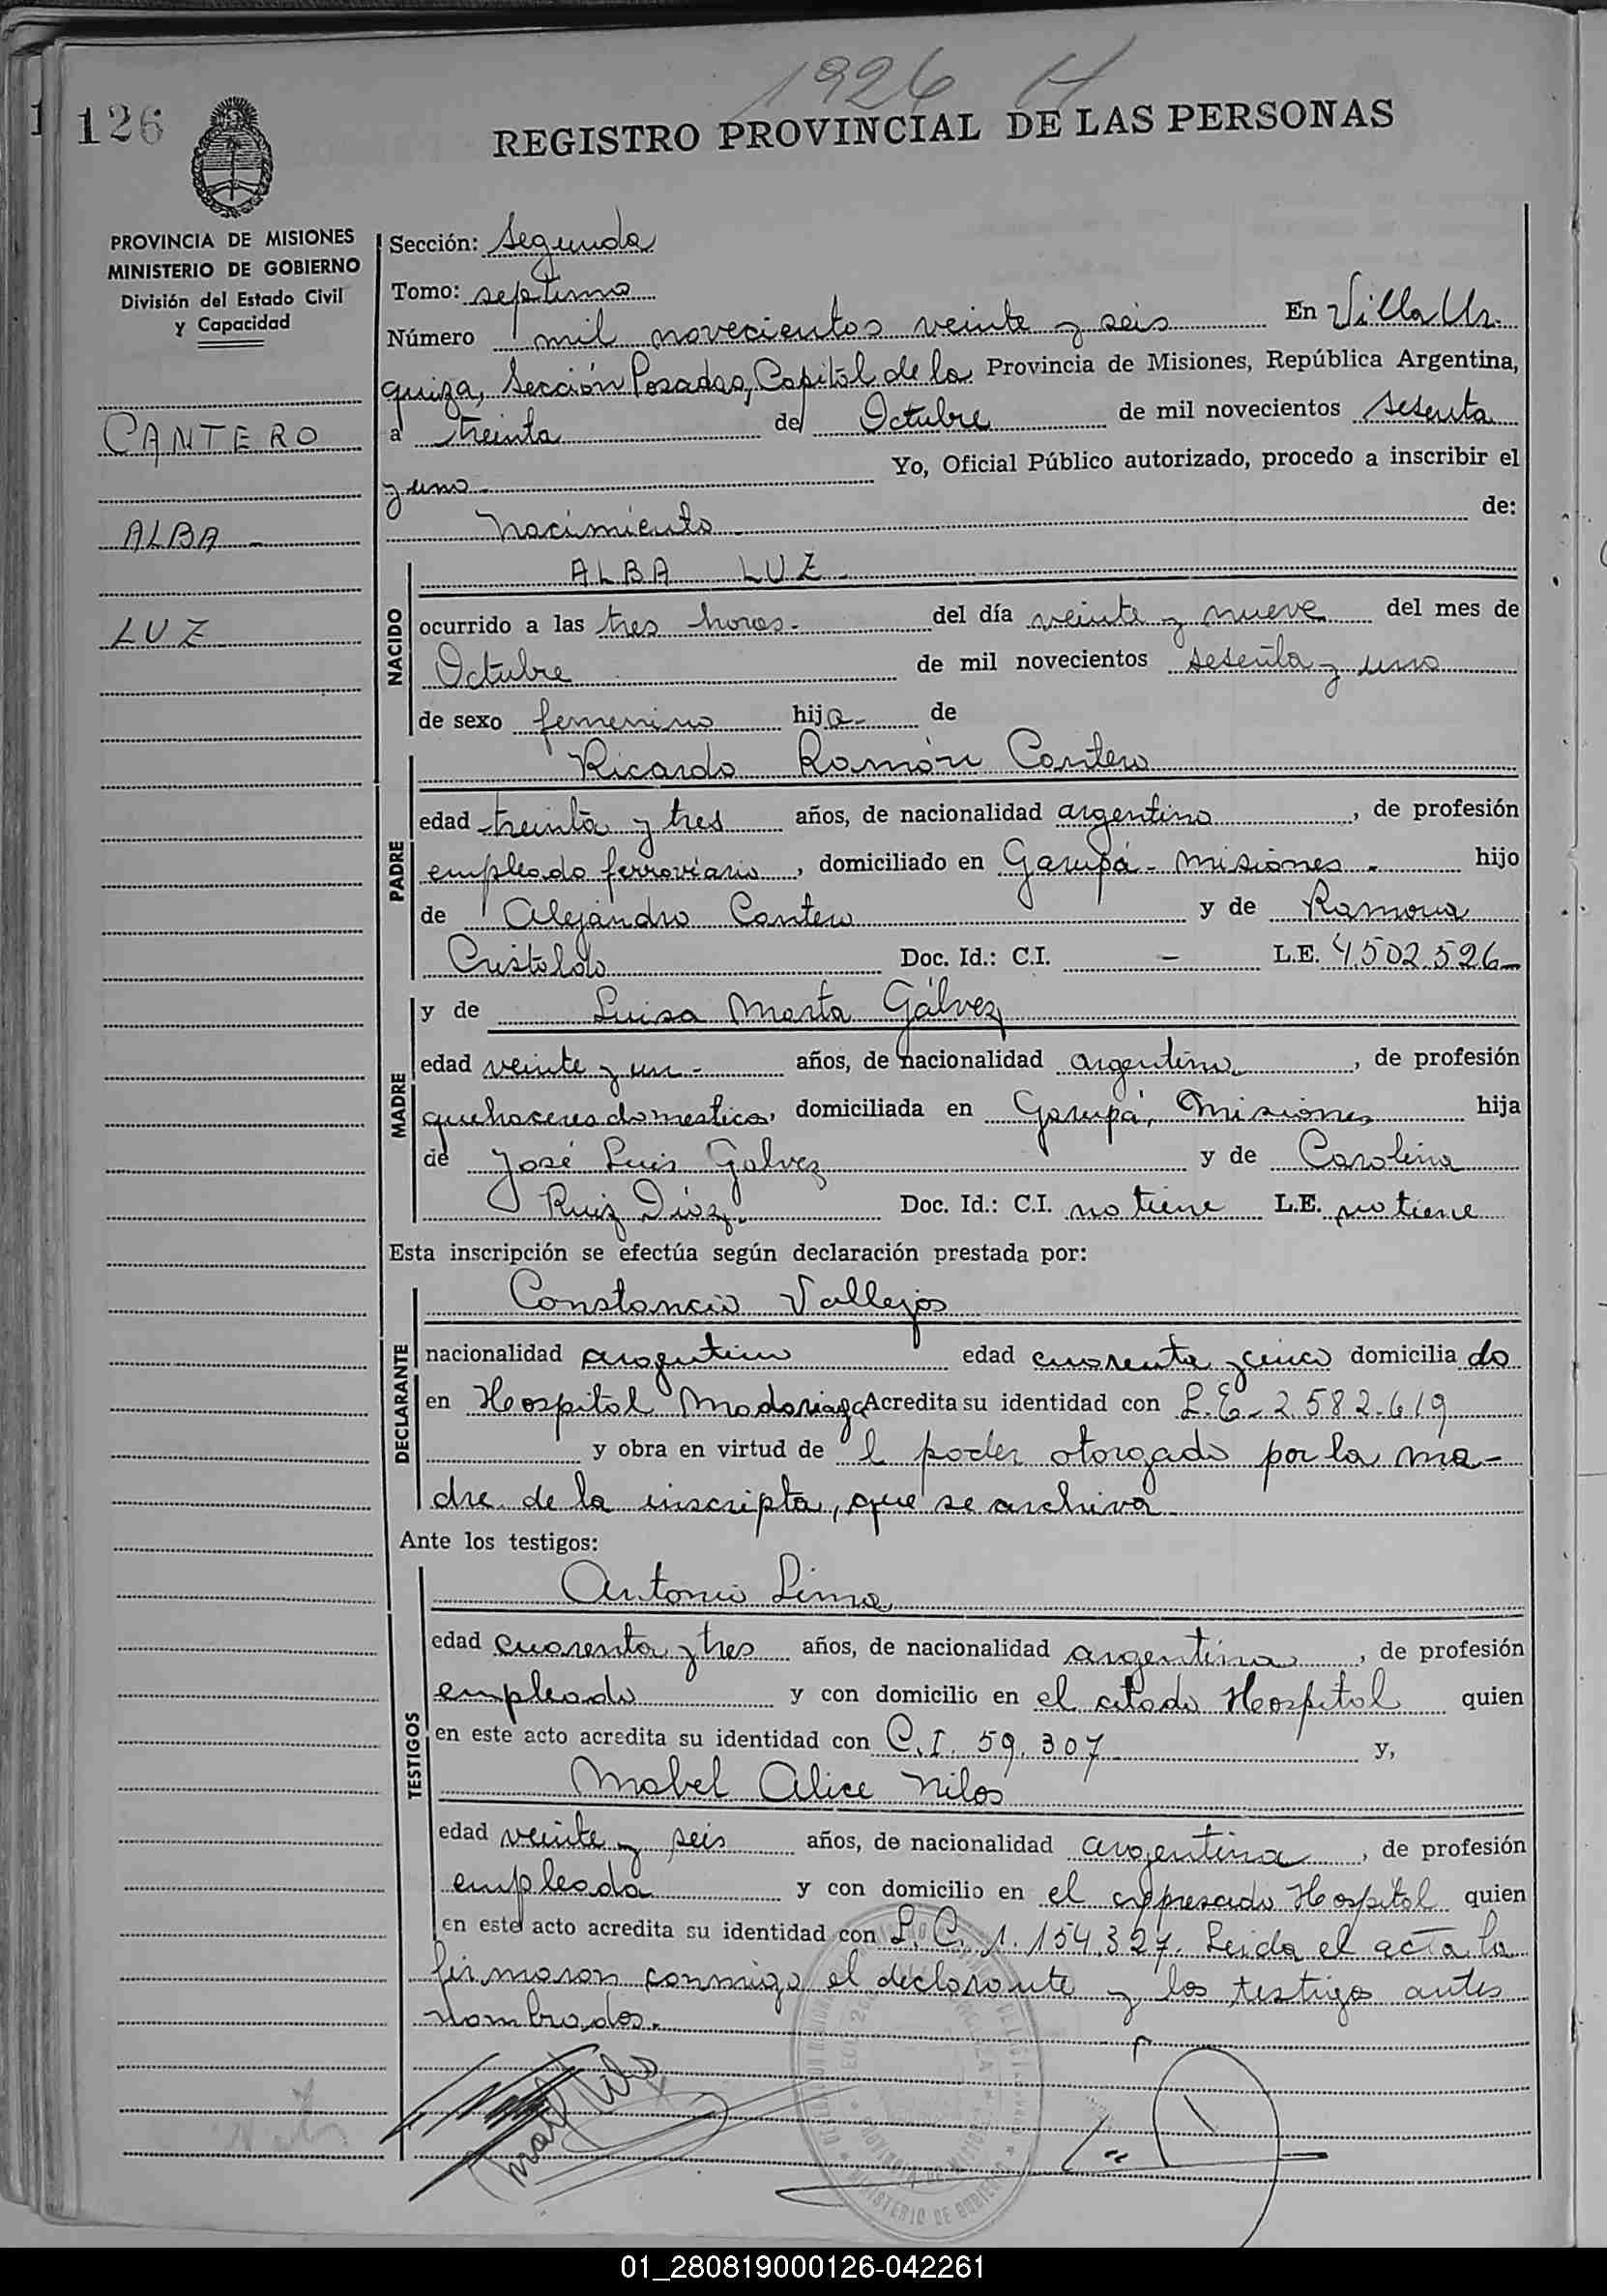 1926 H
126
REGISTRO PROVINCIAL DE LAS PERSONAS
PROVINCIA DE MISIONES
MINISTERIO DE GOBIERNO
División del Estado Civil
y Capacidad
CANTERO
ALBA -
LUZ
Sección: Segunda
Tomo: septimo
Número mil novecientos veinte y seis En Villa Ur-
quiza, Sección Posadas, Capital de la Provincia de Misiones, República Argentina,
a treinta de Octubre de mil novecientos sesenta
y uno - Yo, Oficial Público autorizado, procedo a inscribir el
nacimiento de:
NACIDO
ALBA LUZ -
ocurrido a las tres horas - del día veinte y nueve del mes de
Octubre de mil novecientos sesenta y uno
de sexo femenino hija - de
PADRE
Ricardo Ramón Cantero
edad treinta y tres años, de nacionalidad argentino, de profesión
empleado ferroviario, domiciliado en Garupá - Misiones - hijo
de Alejandro Cantero y de Ramona
Cristaldo Doc. Id.: C.I. - L.E. 4.502.526 -
MADRE
y de Luisa Marta Gálvez
edad veinte y un - años, de nacionalidad argentina, de profesión
quehaceres domesticos, domiciliada en Garupá, Misiones hija
de José Luis Galvez y de Carolina
Ruiz Diaz - Doc. Id.: C.I. no tiene L.E. no tiene
Esta inscripción se efectúa según declaración prestada por:
DECLARANTE
Constancio Vallejos
nacionalidad argentino edad cuarenta y cinco domiciliado
en Hospital Madariaga Acredita su identidad con L.E. - 2.582.619
y obra en virtud del poder otorgado por la ma-
dre de la inscripta, que se archiva
Ante los testigos:
TESTIGOS
Antonio Lima
edad cuarenta y tres años, de nacionalidad argentina, de profesión
empleado y con domicilio en el citado Hospital quien
en este acto acredita su identidad con C.I. 59.307 y,
Mabel Alice Nilos
edad veinte y seis años, de nacionalidad argentina, de profesión
empleada y con domicilio en el expresado Hospital quien
en este acto acredita su identidad con L.C. 1.154.327. Leida el acta la
firmaron conmigo el declarante y los testigos antes
nombrados.
01_280819000126-042261